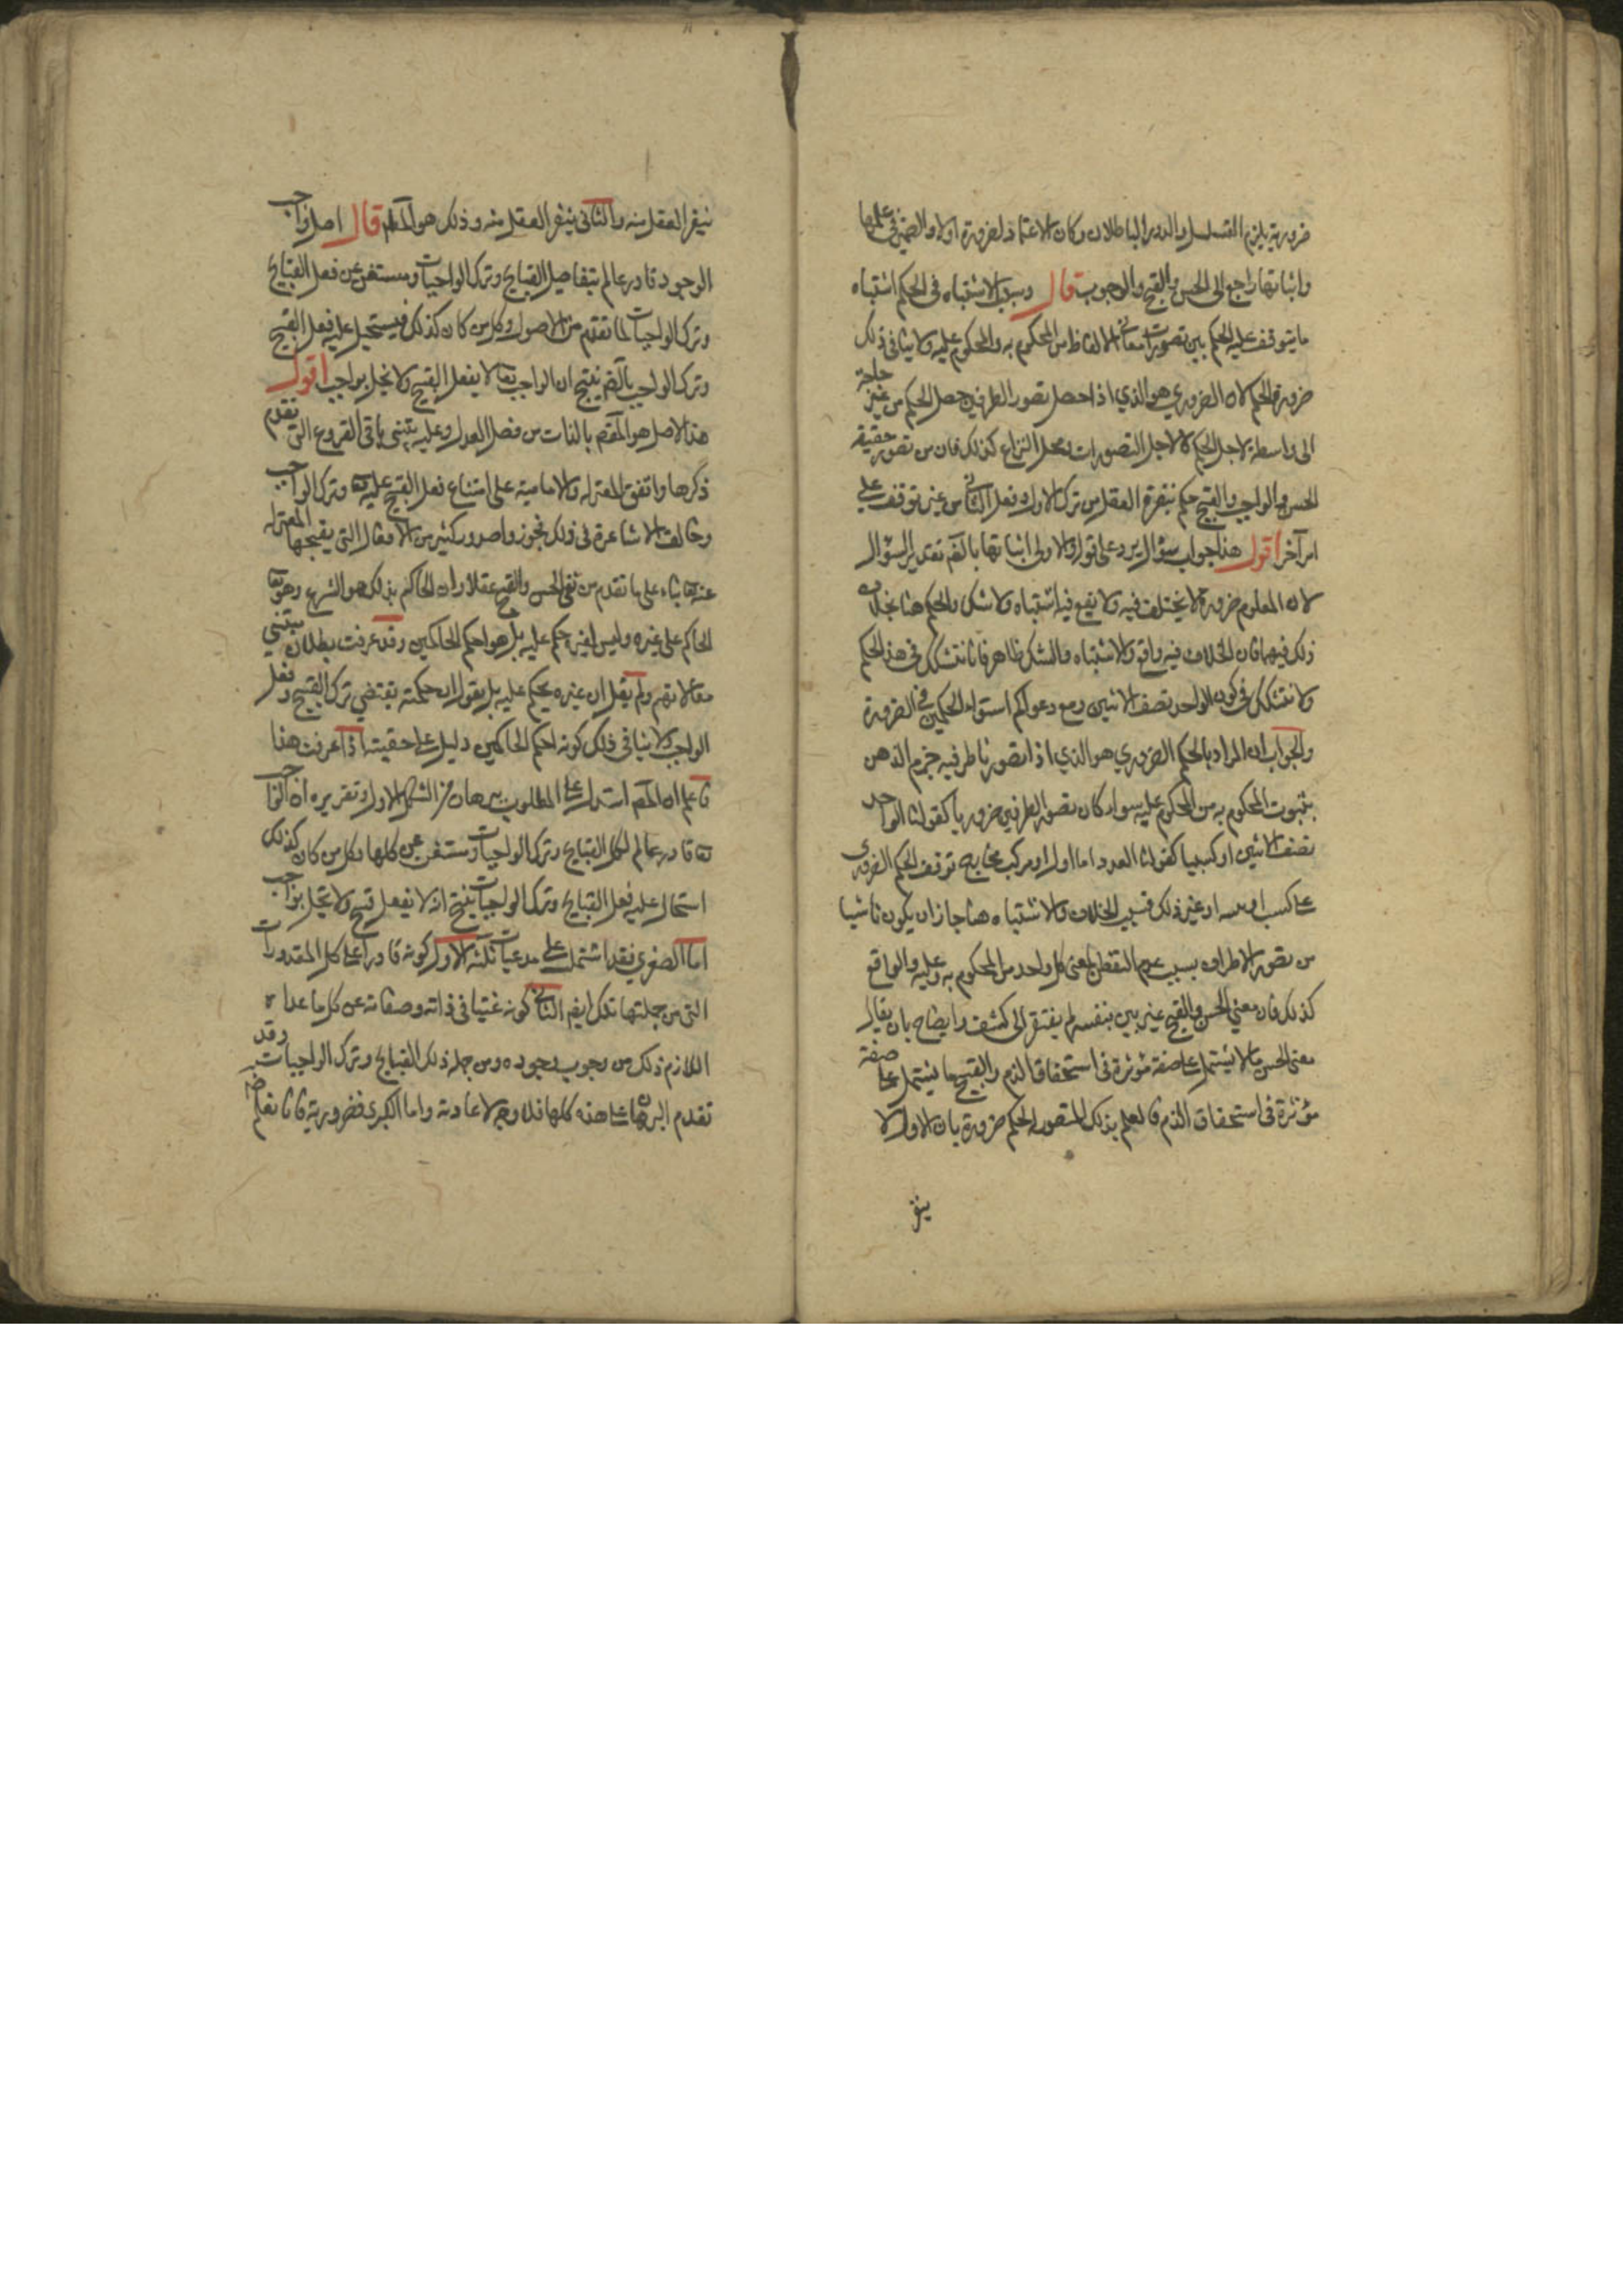 ضرورية يلزم التسلسل والدور الباطلان وكان الاعتماد لضرورة اولا والضمير في علمها
واثباتها راجع الى الحسن والقبح والوجوب قال وسبب الاشتباه في الحكم اشتباه
ما يتوقف عليه الحكم بين تصورات معاني الالفاظ من المحكوم به والمحكوم عليه ولا ينافي ذلك
ضرورة الحكم لان الضروري هو الذي اذا حصل تصور الطرفين حصل الحكم من غير حاجة
الى واسطة لاجل الحكم لا لاجل التصورات ومحل النزاع كذلك فان من تصور حقيقة
الحسن والواجب والقبيح حكم بنفرة العقل من ترك الاول وفعل الثاني من غير توقف على
امر آخر اقول هذا جواب سؤال يرد على قوله والاولى اثباتها بالضم تقدير السؤال
لان المعلوم ضرورة لا يختلف فيه ولا يقع فيه اشتباه ولا شك والحكم هنا بخلاف
ذلك فيهما فان الخلاف فيه واقع والاشتباه والشك ظاهر فانا نتشكك في هذا الحكم
ولا نتشكك في كون الواحد نصف الاثنين ومع دعواكم استواء الحكمين في الضرورة
والجواب ان المراد بالحكم الضروري هو الذي اذا تصورنا طرفيه جزم الذهن
بثبوت المحكوم به من المحكوم عليه سواء كان تصور الطرفين ضروريا كقولنا الواحد
نصف الاثنين او كسبيا كقولنا العدد اما اول او مركب توقف الحكم الضروري
على كسب او غير ذلك فسبب الخلاف والاشتباه هنا جاز ان يكون ناشيا
من تصور الاطراف بسبب عدم التفطن لمعنى كل واحد من المحكوم به وعليه والواقع
كذلك فان معنى الحسن والقبح غير بين بنفسه لم يفتقر الى كشف وايضاح بان يقال
معنى الحسن ما لا يشتمل على صفة مؤثرة في استحقاق الذم والقبيح ما يشتمل على صفة
مؤثرة في استحقاق الذم فالعلم بذلك المتصور الحكم ضرورة بان الاول لا
ينفر
ينفر العقل منه والثاني ينفر العقل منه وذلك هو المطلوب قال اصل واجب
الوجود قادر عالم بتفاصيل القبايح وترك الواجبات ومستغن عن فعل القبايح
وترك الواجبات لما تقدم من الاصول وكل من كان كذلك فيستحيل عليه فعل القبيح
وترك الواجب بالضم ينتج ان الواجب تعا لا يفعل القبيح ولا يخل بواجب اقول
هذا الاصل هو المقصم بالذات من فصل العدل وعليه يبتنى باقي الفروع التي تقدم
ذكرها واتفق المعتزلة والامامية على امتناع فعل القبيح عليه تعا وترك الواجب
وخالفت الاشاعرة في ذلك فجوزوا صدور كثير من الافعال التي يقبحها المعتزلة
عنه تعا بناء على ما تقدم من نفي الحسن والقبح عقلا وان الحاكم بذلك هو الشرع وهو تعا
الحاكم على غيره وليس لغيره حكم عليه بل هو احكم الحاكمين وقد عرفت بطلان مبتني
مقالاتهم ولم يقل ان غيره يحكم عليه بل يقول ان حكمته يقتضي ترك القبيح وفعل
الواجب ولا ينافي ذلك كونه احكم الحاكمين دليل على حقيته اذا عرفت هذا
فاعلم ان المصم استدل على المطلوب ببرهان من الشكل الاول وتقريره ان الواجب
تعا قادر عالم لكل القبايح وترك الواجبات ومستغن عن كلها وكل من كان كذلك
استحال عليه فعل القبايح وترك الواجبات ينتج انه لا يفعل قبيح ولا يخل بواجب
اما الصغرى فقد اشتملت على مدعيات ثلثة الاول كونه قادرا على كل المقدورات
التي من جملتها تلك ايضم الثاني كونه غنيا في ذاته وصفاته عن كل ما عداه
اللازم ذلك من وجوب وجوده ومن جملة ذلك القبايح وترك الواجبات وقد
تقدم البرهان على هذه كلها فلا وجه لاعادته واما الكبرى فضرورية فانا نعلم